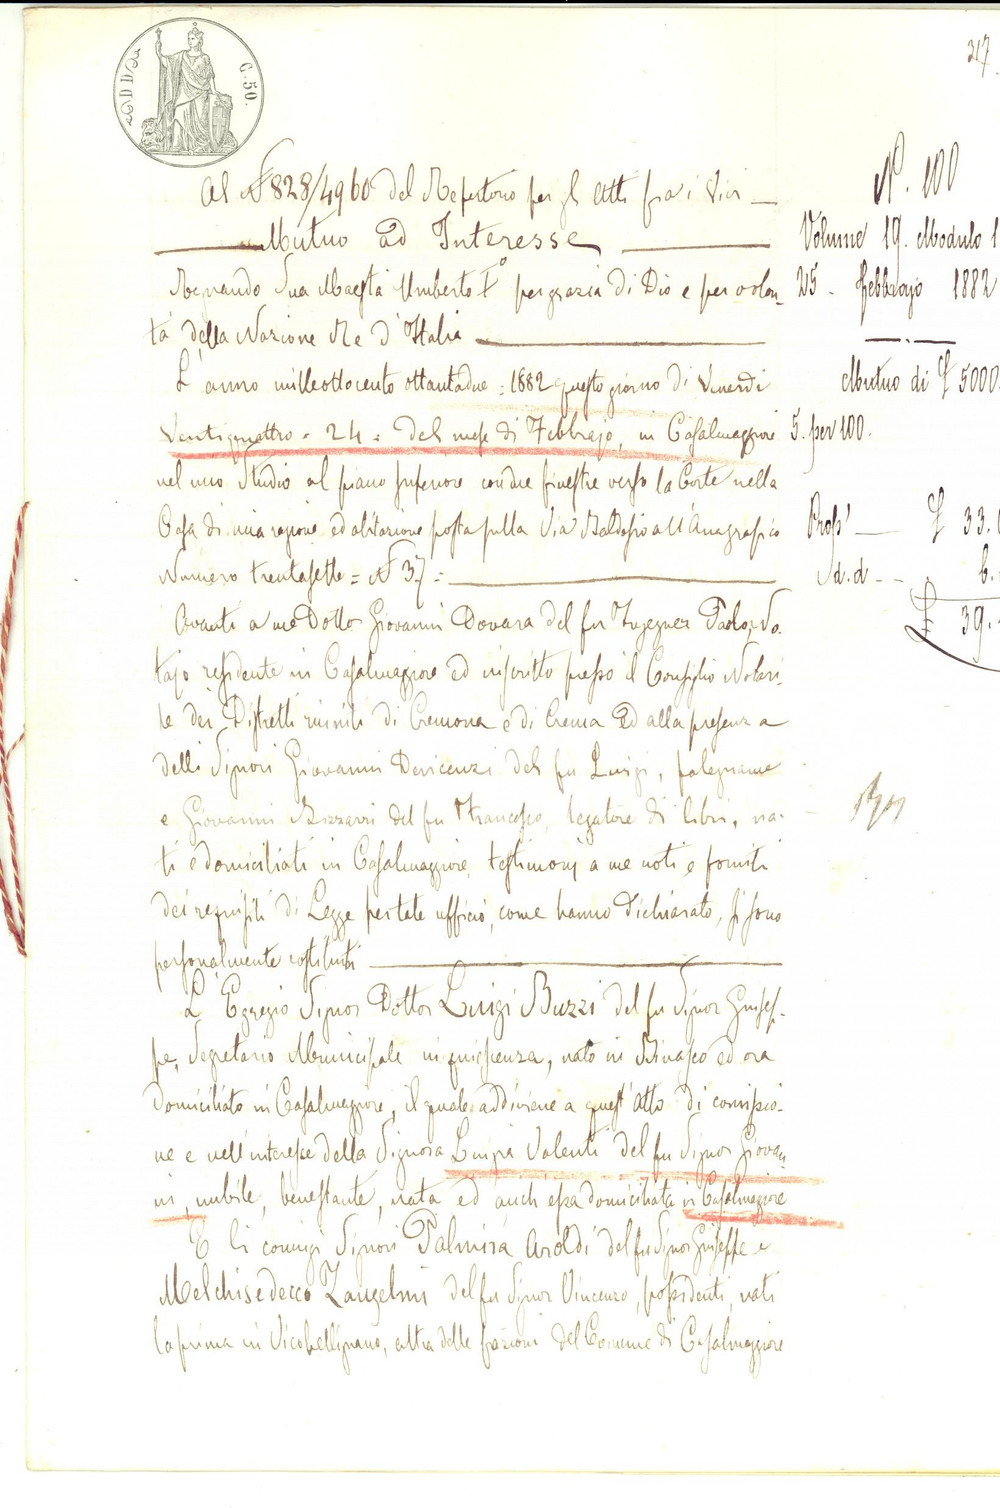 C. 50.
317.
Al N 828/4960 del Repertorio per gli Atti fra i Vivi
Mutuo ad Interesse
Regnando Sua Maestà Umberto I° per grazia di Dio e per volon-
tà della Nazione Re d'Italia
L'anno milleottocento ottantadue = 1882 questo giorno di Venerdì
Ventiquattro = 24 = del mese di Febbrajo, in Casalmaggiore
nel mio Studio al piano inferiore con due finestre verso la Corte nella
Casa di mia ragione ed abitazione posta sulla Via Baldesio all'Anagrafico
Numero trentasette = N 37 =
Avanti a me Dottor Giovanni Dovara del fu Ingegner Paolo, No-
tajo residente in Casalmaggiore ed inscritto presso il Consiglio Notari-
le dei Distretti riuniti di Cremona e di Crema ed alla presenza
delli Signori Giovanni Devicenzi del fu Luigi, falegname
e Giovanni Bizzarri del fu Francesco, legatore di libri, na-
ti e domiciliati in Casalmaggiore, testimonj a me noti e forniti
dei requisiti di Legge per tale ufficio, come hanno dichiarato, si sono
personalmente costituiti
L'Egregio Signor Dottor Luigi Buzzi del fu Signor Giusep-
pe, Segretario Municipale in quiescenza, nato in Binasco ed ora
domiciliato in Casalmaggiore, il quale addiviene a quest'Atto di commissio-
ne e nell'interesse della Signora Luigia Valenti del fu Signor Giovan-
ni, nubile, benestante, nata ed anch'essa domiciliata in Casalmaggiore
E li coniugi Signori Palmira Aroldi del fu Signor Giuseppe e
Melchisedecco Zangelmi del fu Signor Vincenzo, possidenti, nati
la prima in Vicobellignano, altra delle frazioni del Comune di Casalmaggiore
N. 100
Volume 19. Modulo 1
25 Febbrajo 1882
Mutuo di £ 5000
5. per 100.
Prop' £ 33.
d.d 6.
£ 39.